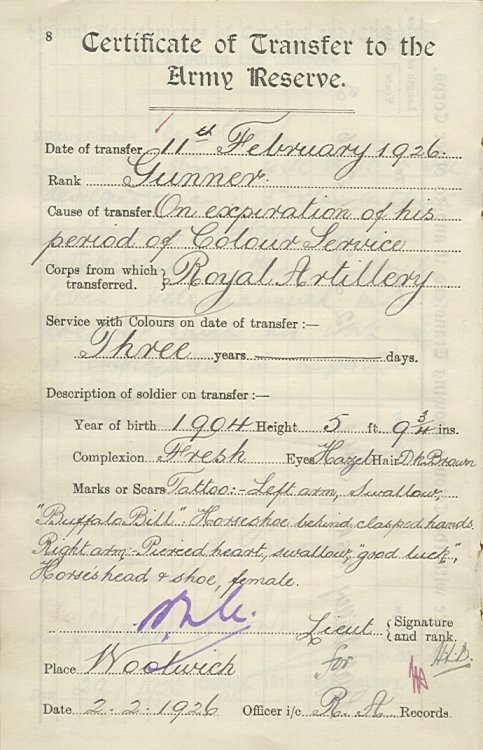 8
Certificate of Transfer to the
Army Reserve.
Date of transfer 11th February 1926.
Rank Gunner.
Cause of transfer On expiration of his
period of Colour Service
Corps from which transferred. } Royal Artillery
Service with Colours on date of transfer :—
Three years — days.
Description of soldier on transfer :—
Year of birth 1904 Height 5 ft. 9 3/4 ins.
Complexion Fresh Eyes Hazel Hair Dk Brown
Marks or Scars Tattoo:- Left arm, Swallow,
"Buffalo Bill" Horseshoe behind clasped hands.
Right arm - Pierced heart, swallow, "good luck",
Horses head & shoe, female.
Lieut { Signature and rank.
Place Woolwich for
Date 2-2-1926 Officer i/c R. A Records.